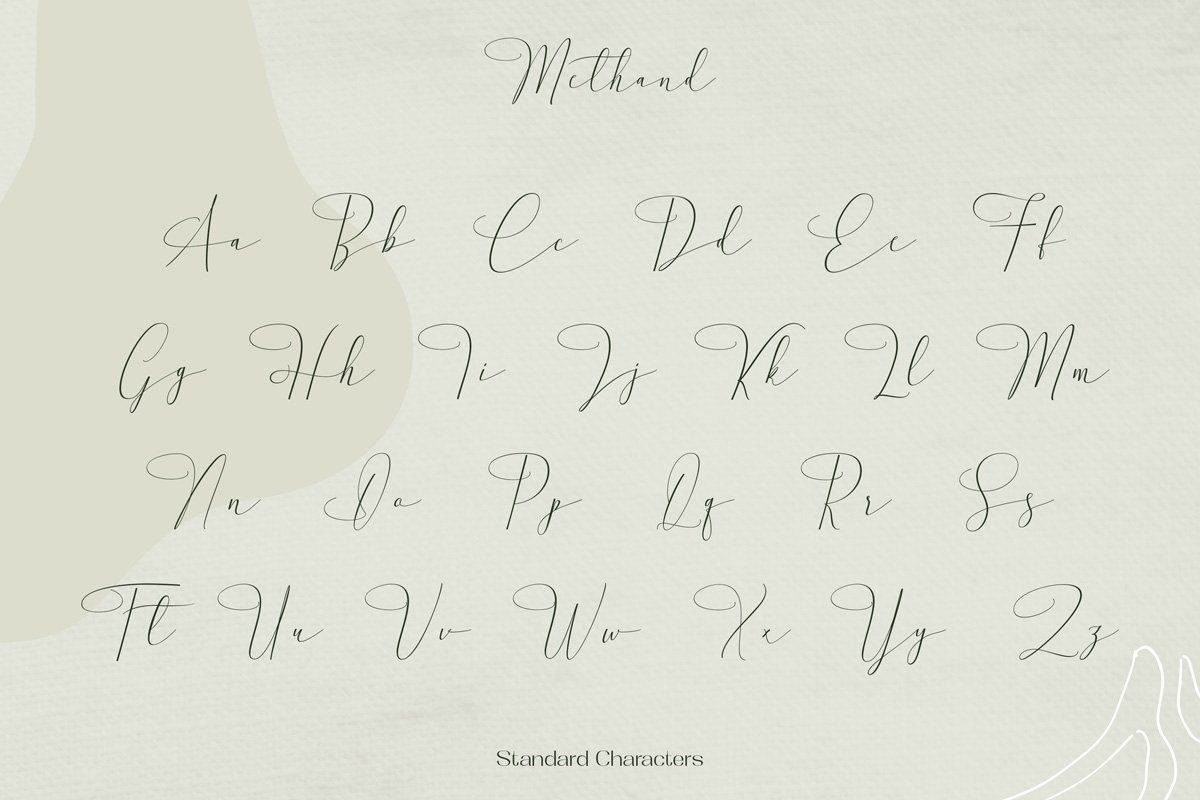 Methand
Aa Bb Cc Dd Ee Ff
Gg Hh Ii Jj Kk Ll Mm
Nn Oo Pp Qq Rr Ss
Tt Uu Vv Ww Xx Yy Zz
Standard Characters